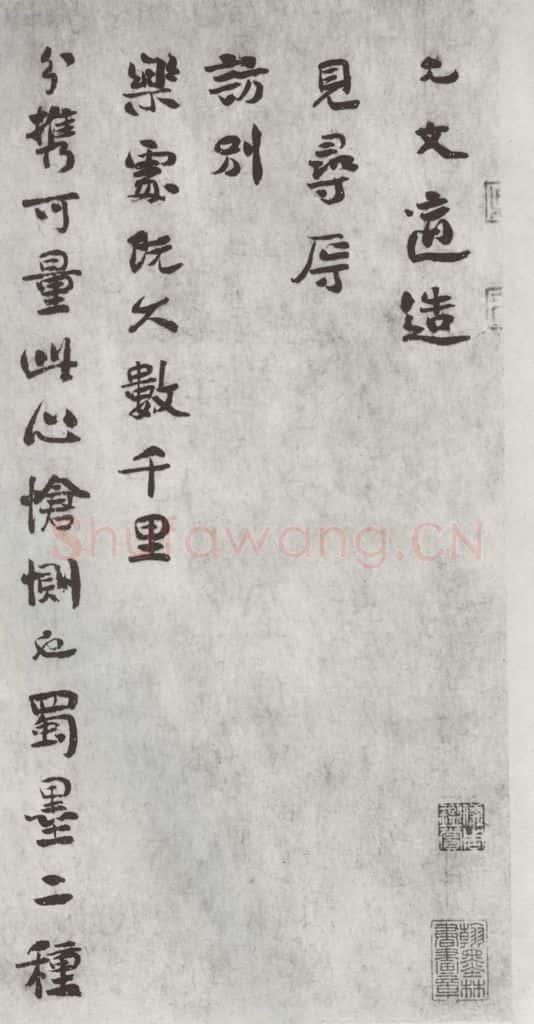 允文適造
見尋辱
訪別
樂處既久數千里
分攜可量此心愴惻也蜀墨二種
Shufawang.CN
翰墨林書畫章